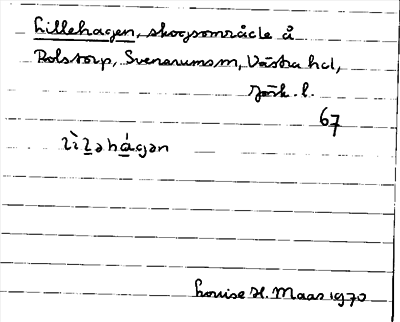 Lillehagen, skogsområde å
Rolstorp, Svenarums sn, Västra hd,
Jönk. l.
67
lìlǝhágǝn
Louise H. Maas 1970